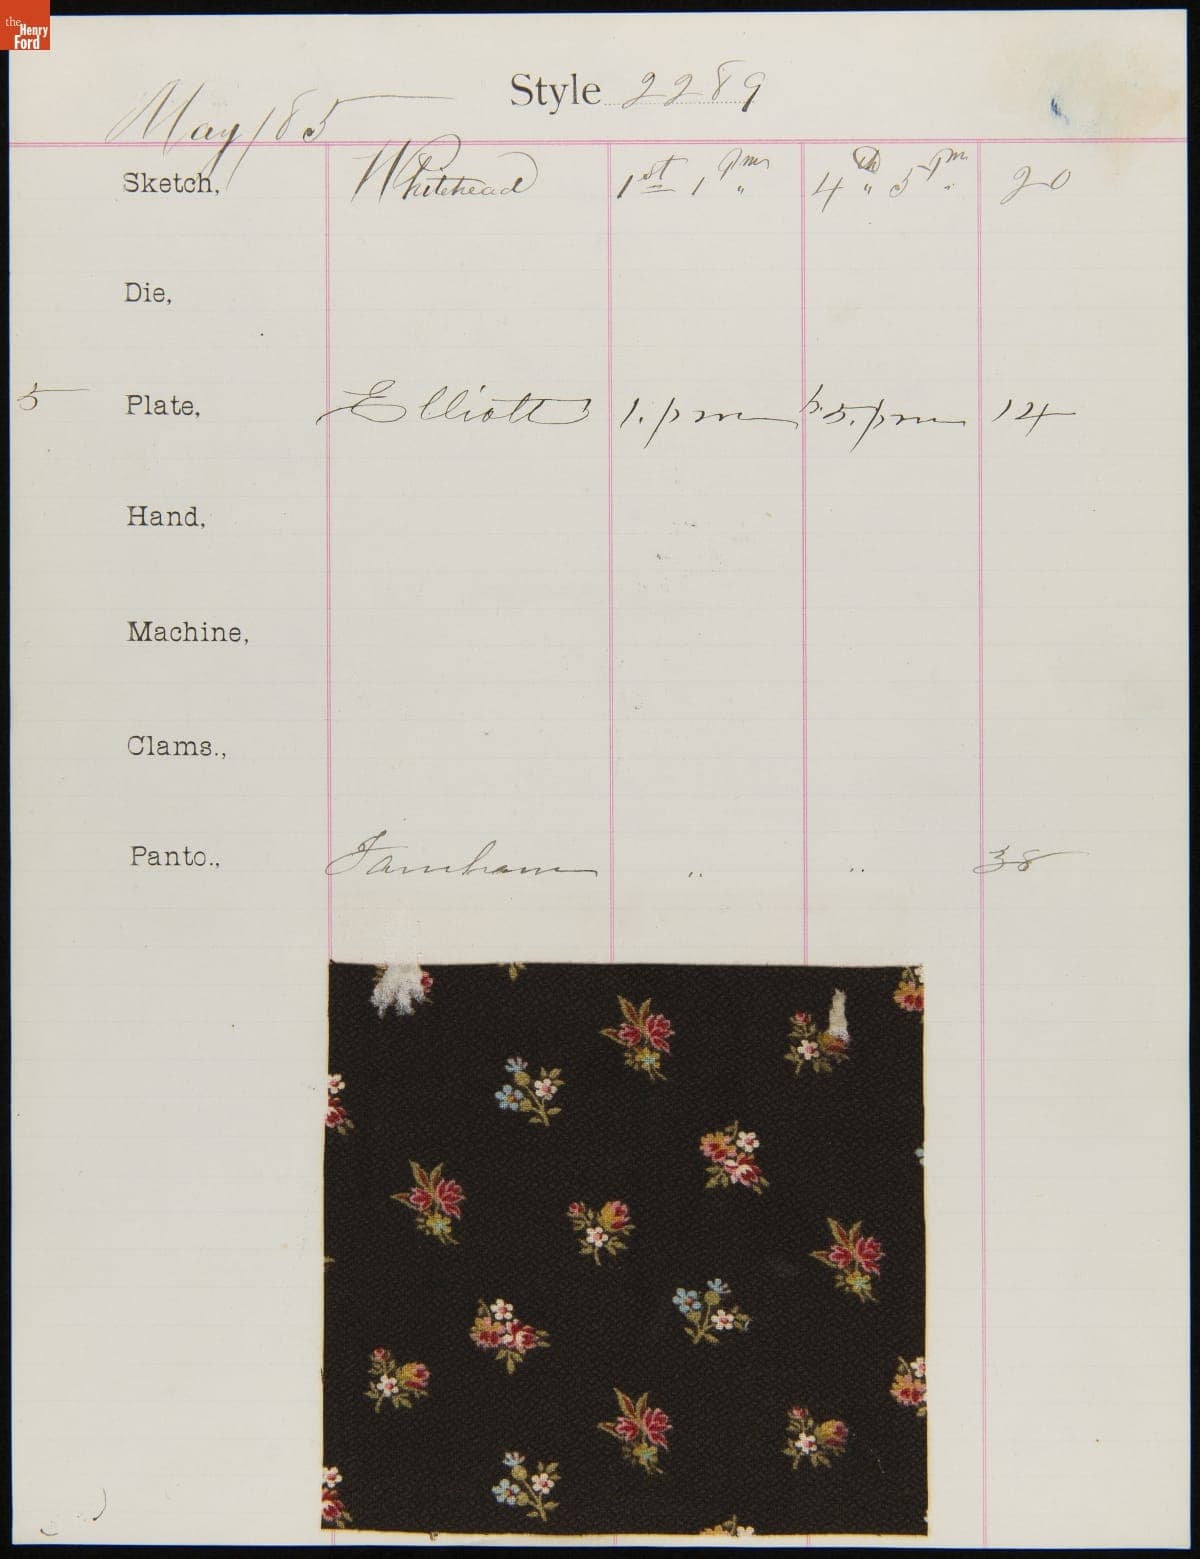 the
Henry
Ford
Style 2289
May / 85
Sketch, Whitehead 1st 1 pm 4th 5 pm 20
Die,
5 Plate, Elliott 1. pm 5. pm 14
Hand,
Machine,
Clams.,
Panto., Farnham " " 38